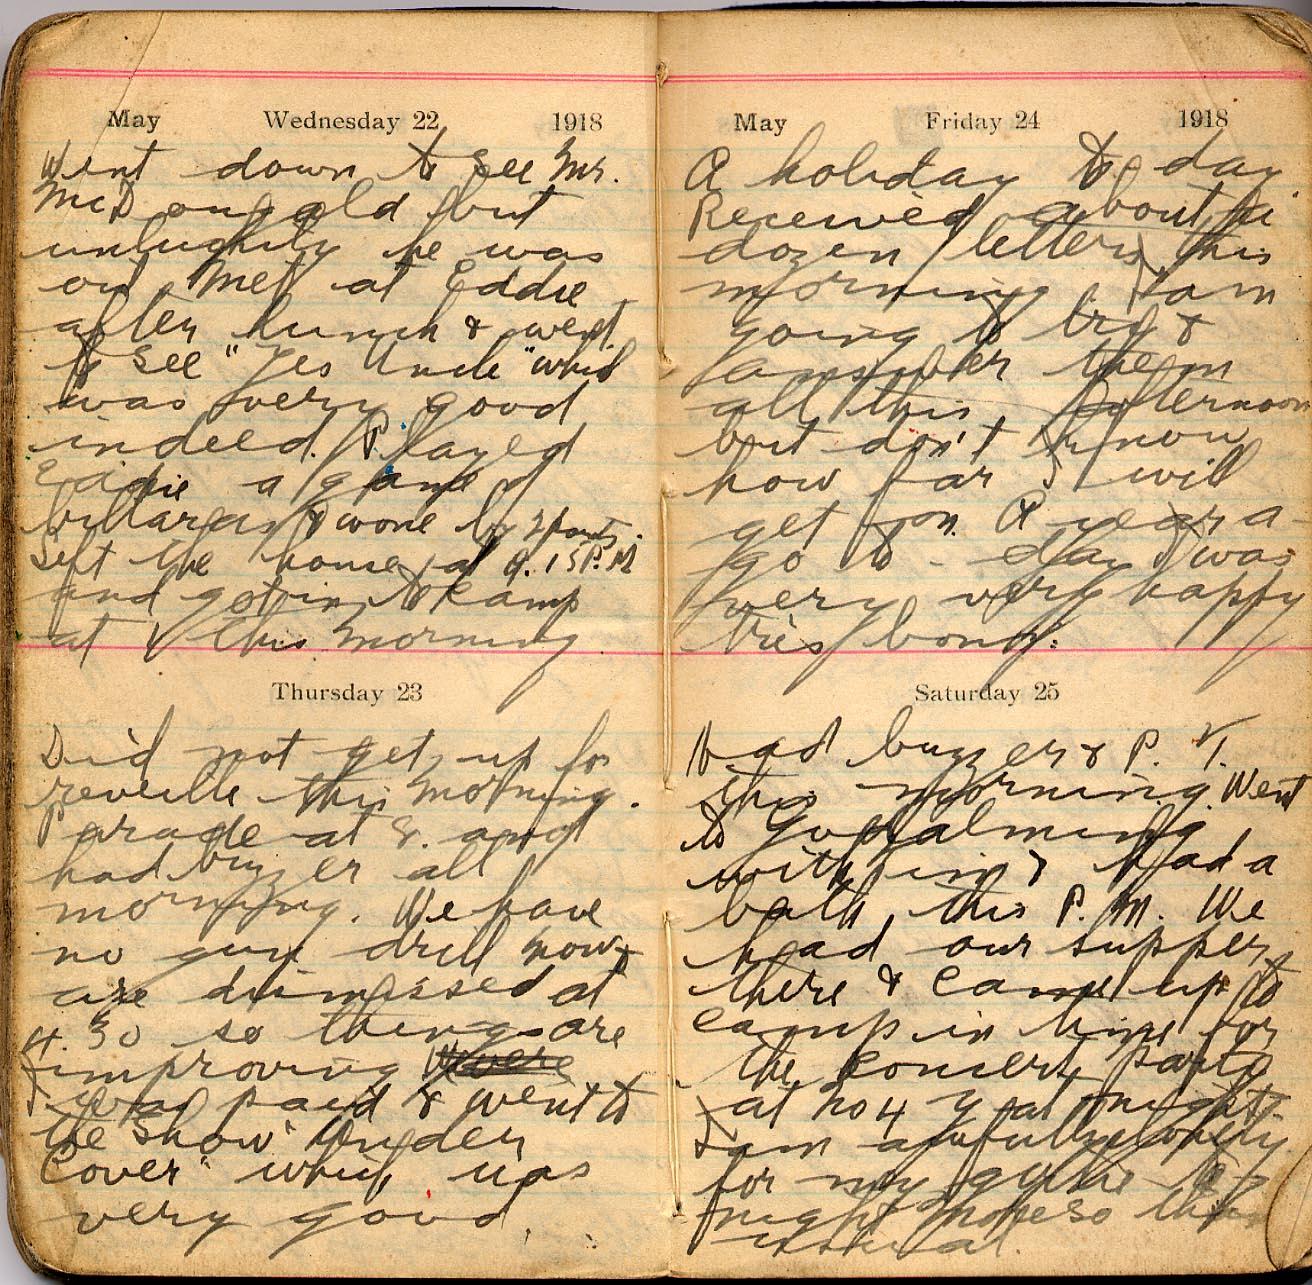 May Wednesday 22 1918
Went down to see Mr.
McDougald but
unluckily he was
out. Met at Eddie
after lunch & went
to see "Yes Uncle" which
was very good
indeed. Played
Eddie a game of
billards & wone by 2 points.
Left the home at 9.15 P.M
and got into Camp
at 1 this morning
Thursday 23
Did not get up for
reveille this morning.
Parade at 8. and
had buzzer all
morning. We have
no gun drill now &
are dismissed at
4.30 so things are
improving
I was paid & went to
the Show "Under
Cover" which was
very good.
May Friday 24 1918
A holiday to day.
Received about a
dozen letters this
morning I am
going to try &
answer them
all this afternoon
but don't know
how far I will
get on. A year a-
go to-day I was
very very happy
tres bong:
Saturday 25
Had buzzer & P. T.
this morning. Went
to Godalming
with & had a
bath, this P. M. We
had our supper
there & came up to
camp in time for
the Concert Party
at No 4 Y at night.
I am awfully lonely
for my girlie to-
night more so than
usual.